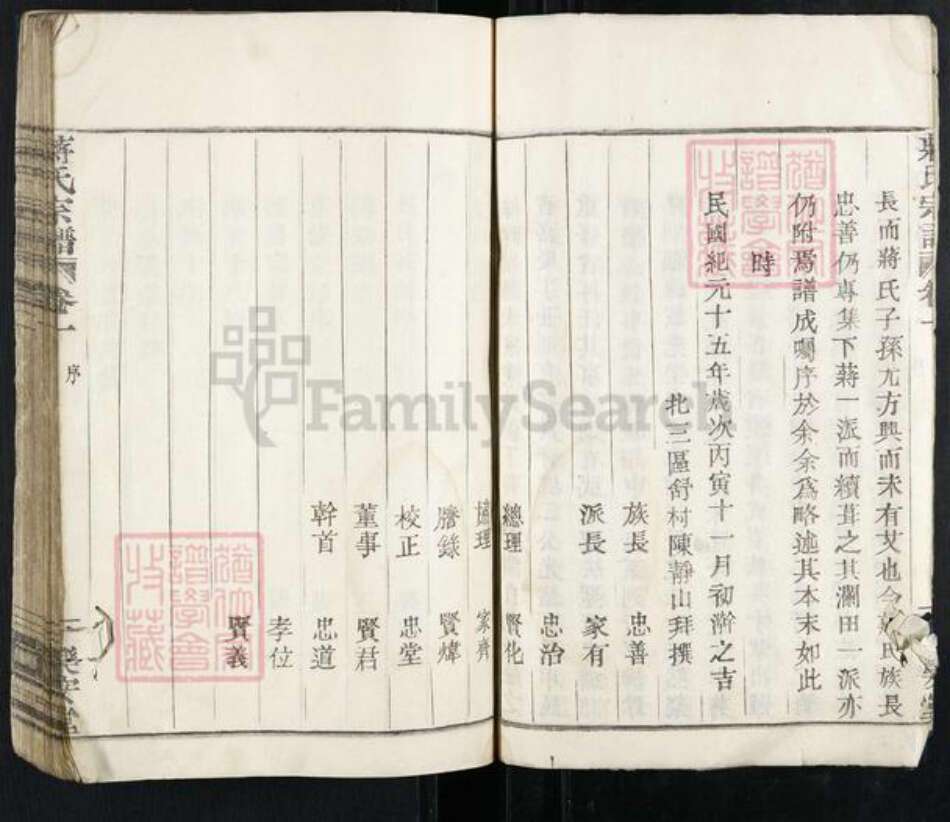 長而蔣氏子孫尤方興而未有艾也今蔣氏族長
忠善仍專集下蔣一派而續葺之其瀾田一派亦
仍附焉譜成囑序於余余爲略述其本末如此
時
民國紀元十五年歲次丙寅十一月初澣之吉
北三區舒村陳靜山拜撰
族長 忠善
派長 家有
忠治
總理 賢化
協理 家齊
謄錄 賢煒
校正 忠堂
董事 賢君
幹首 忠道
孝位
賢義
蔣氏宗譜 卷一 序
FamilySearch